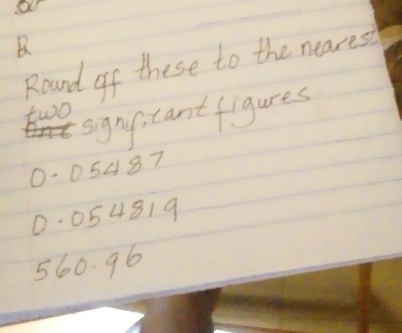 Q
Round off these to the nearest
two significant figures
0.05487
0.054819
560.96